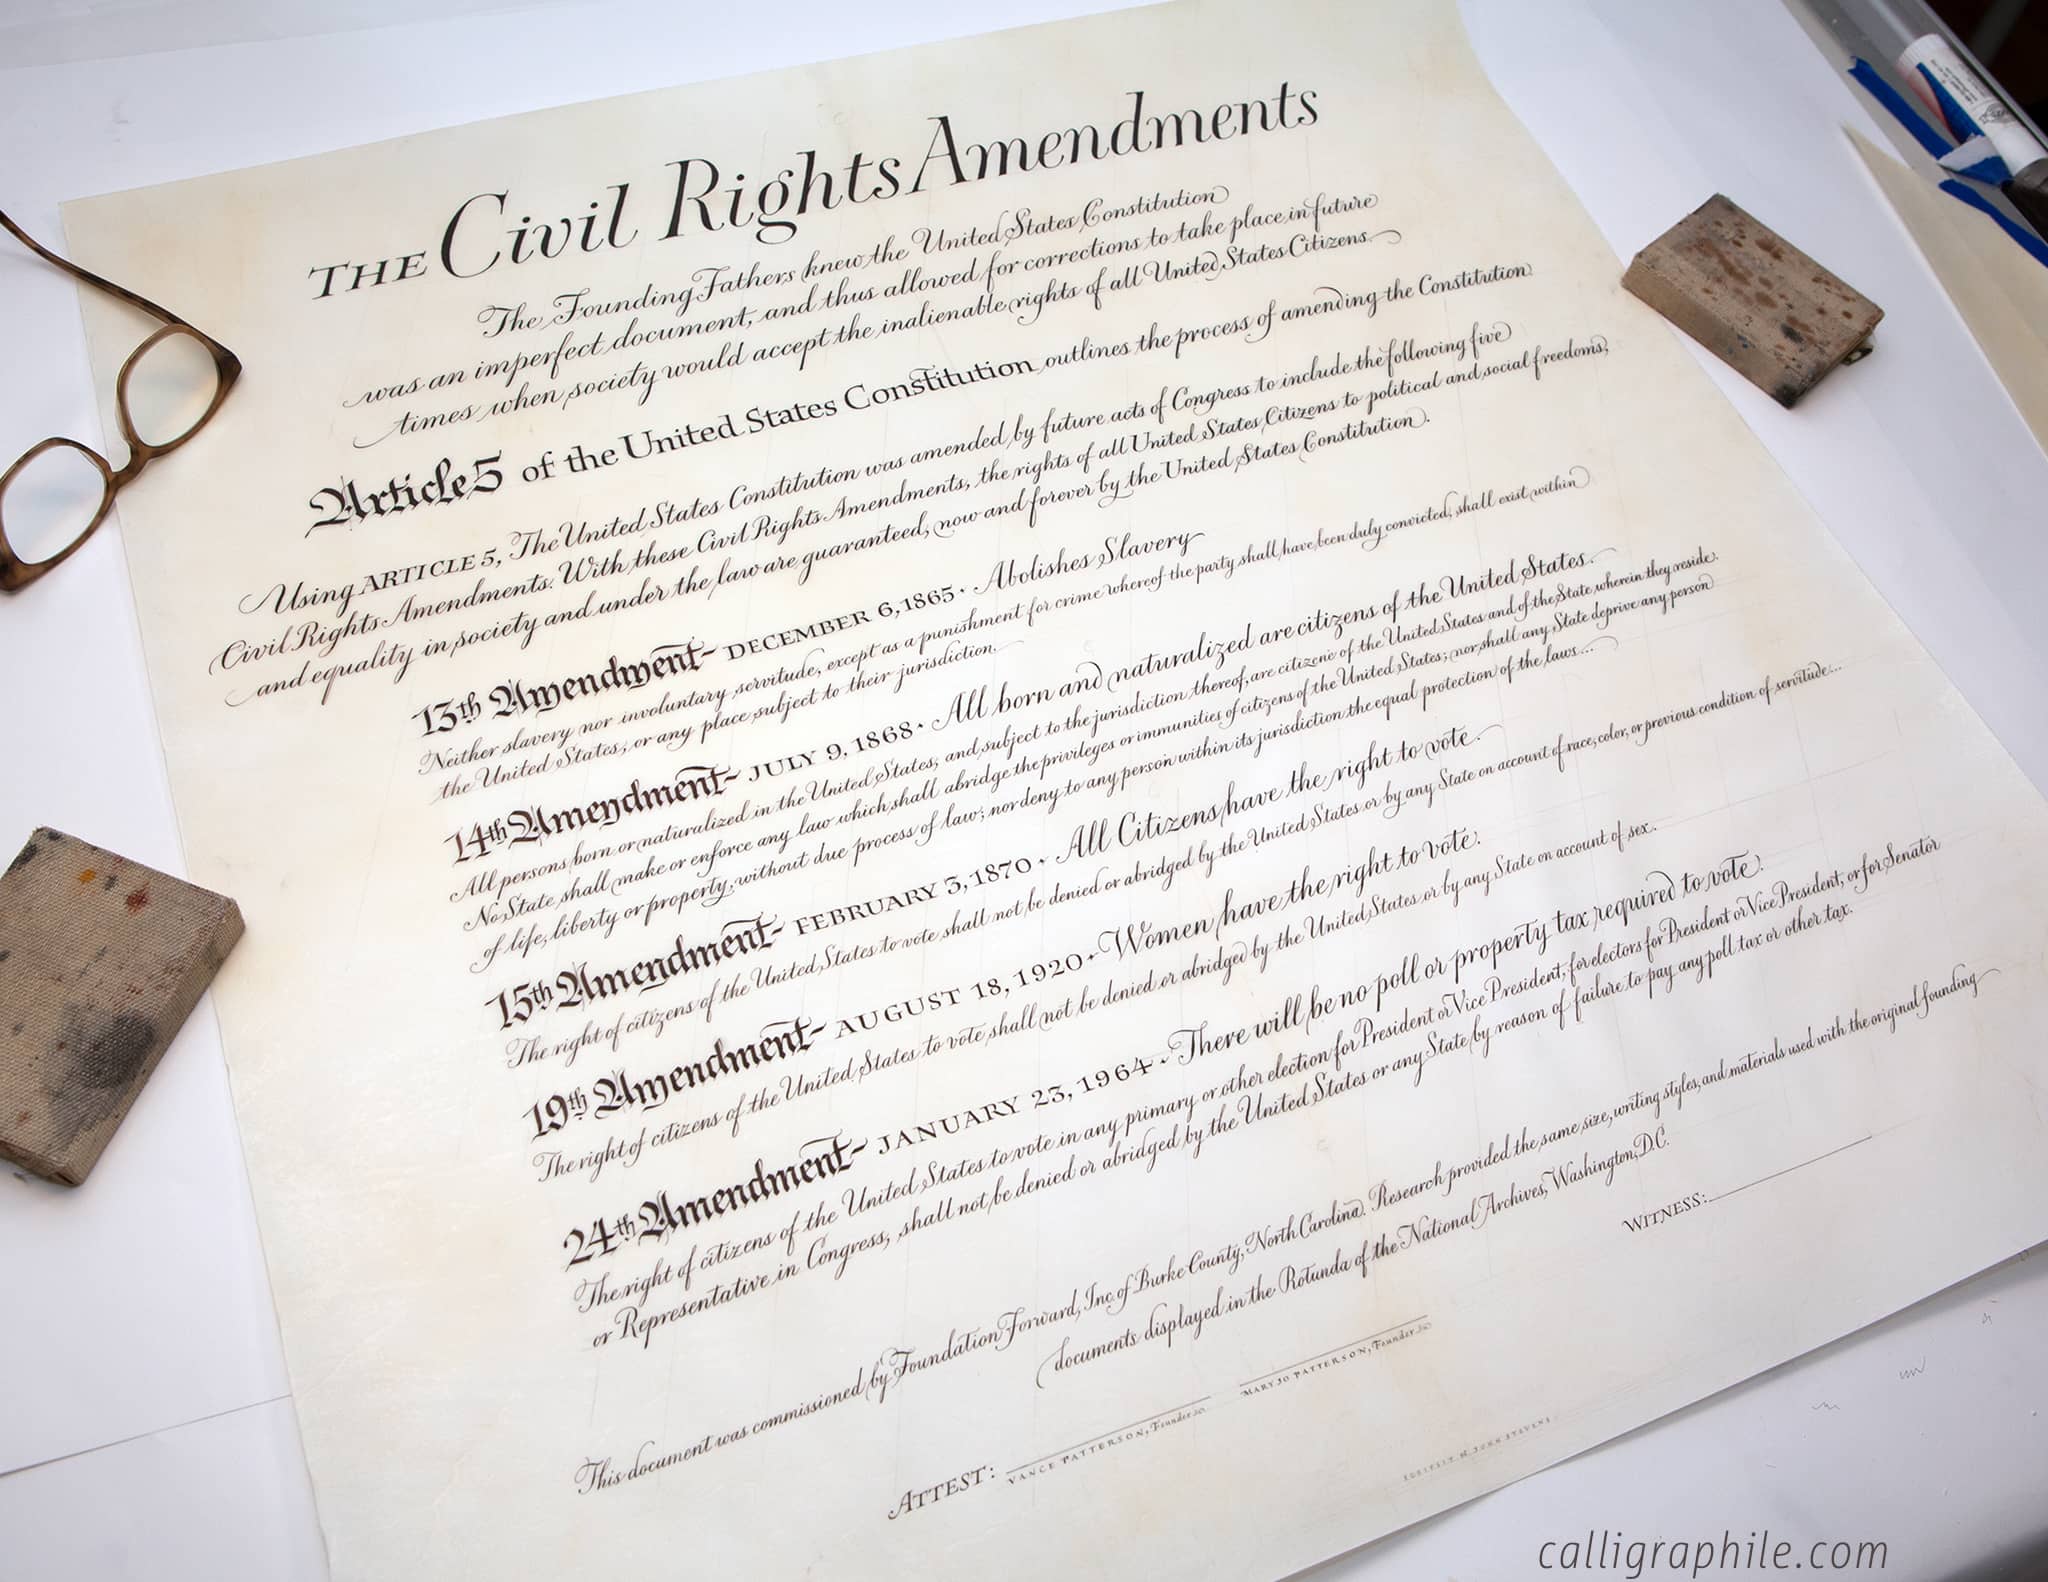 THE Civil Rights Amendments
The Founding Fathers knew the United States Constitution
was an imperfect document, and thus allowed for corrections to take place in future
times when society would accept the inalienable rights of all United States Citizens.
Article 5 of the United States Constitution outlines the process of amending the Constitution.
Using ARTICLE 5, The United States Constitution was amended by future acts of Congress to include the following five
Civil Rights Amendments. With these Civil Rights Amendments, the rights of all United States Citizens to political and social freedoms,
and equality in society and under the law are guaranteed, now and forever by the United States Constitution.
13th Amendment - DECEMBER 6, 1865 · Abolishes Slavery
Neither slavery nor involuntary servitude, except as a punishment for crime whereof the party shall have been duly convicted, shall exist within
the United States, or any place subject to their jurisdiction.
14th Amendment - JULY 9, 1868 · All born and naturalized are citizens of the United States.
All persons born or naturalized in the United States, and subject to the jurisdiction thereof, are citizens of the United States and of the State wherein they reside.
No State shall make or enforce any law which shall abridge the privileges or immunities of citizens of the United States; nor shall any State deprive any person
of life, liberty or property, without due process of law; nor deny to any person within its jurisdiction the equal protection of the laws...
15th Amendment - FEBRUARY 3, 1870 · All Citizens have the right to vote.
The right of citizens of the United States to vote shall not be denied or abridged by the United States or by any State on account of race, color, or previous condition of servitude...
19th Amendment - AUGUST 18, 1920 · Women have the right to vote.
The right of citizens of the United States to vote shall not be denied or abridged by the United States or by any State on account of sex.
24th Amendment - JANUARY 23, 1964 · There will be no poll or property tax required to vote.
The right of citizens of the United States to vote in any primary or other election for President or Vice President, for electors for President or Vice President, or for Senator
or Representative in Congress, shall not be denied or abridged by the United States or any State by reason of failure to pay any poll tax or other tax.
This document was commissioned by Foundation Forward, Inc. of Burke County, North Carolina. Research provided the same size, writing styles, and materials used with the original founding
documents displayed in the Rotunda of the National Archives, Washington, D.C.
WITNESS:
ATTEST:
VANCE PATTERSON, Founder
MARY JO PATTERSON, Founder
JOHN STEVENS
calligraphile.com